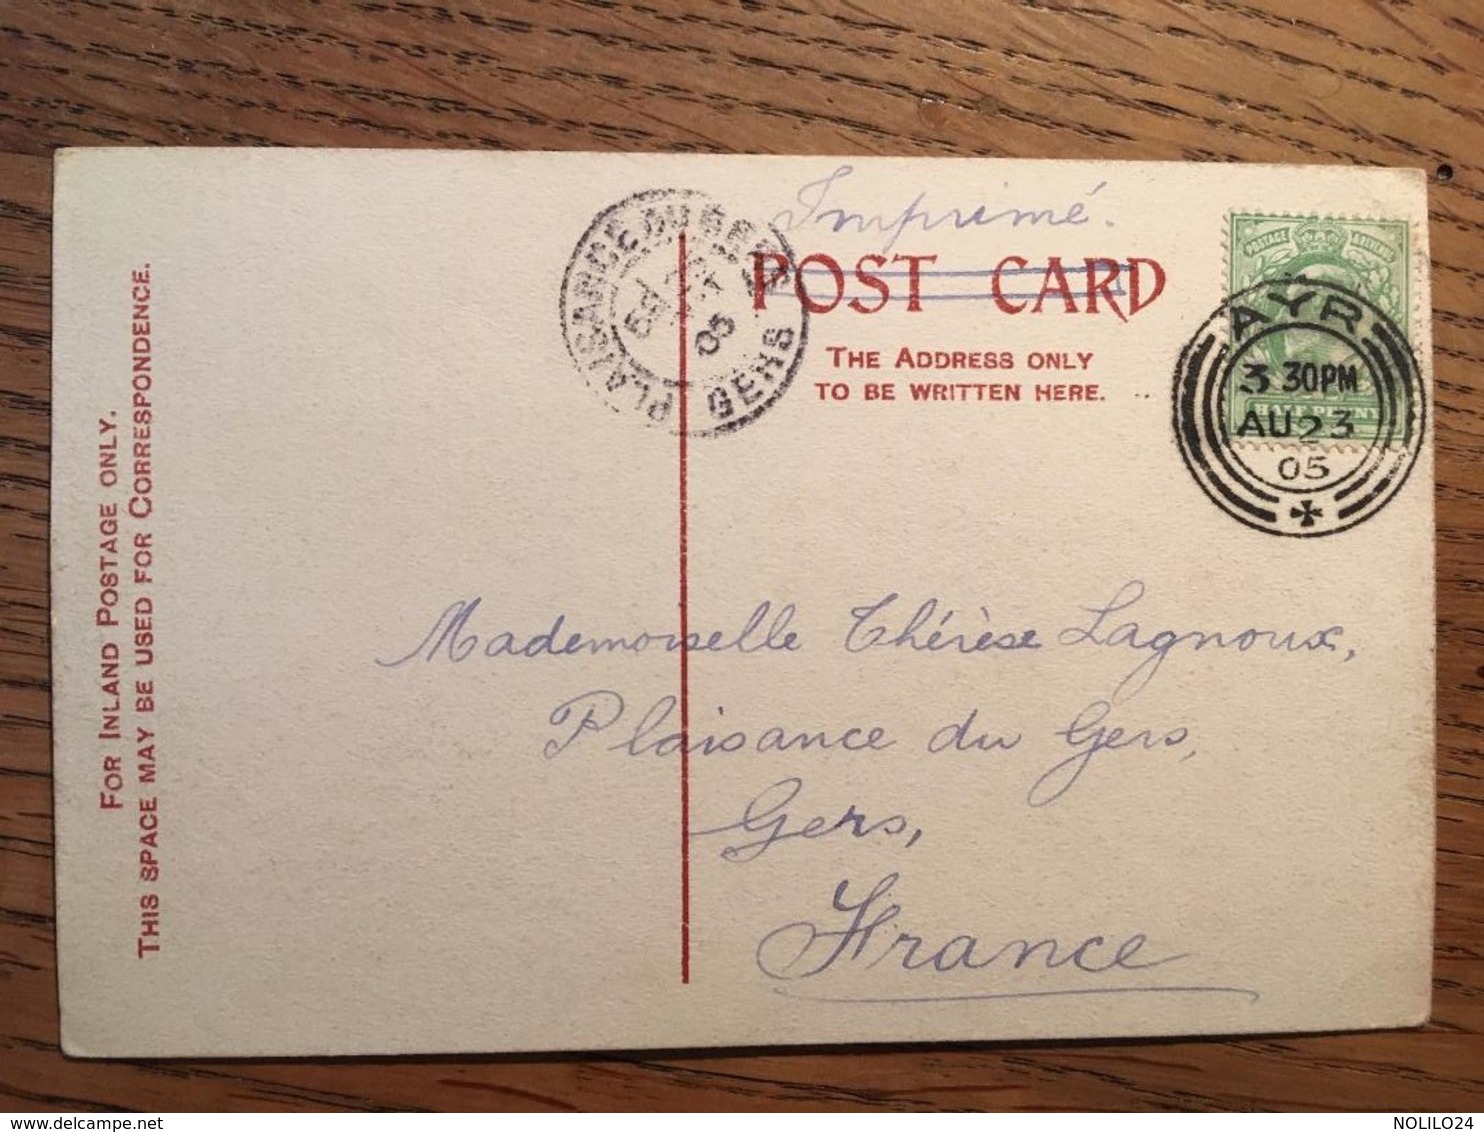 Imprimé.
POST CARD
THE ADDRESS ONLY
TO BE WRITTEN HERE.
FOR INLAND POSTAGE ONLY.
THIS SPACE MAY BE USED FOR CORRESPONDENCE.
PLAISANCE DU GERS
05
GERS
POSTAGE
AYR
3 30PM
AU 23
05
Mademoiselle Thérèse Lagnoux,
Plaisance du Gers,
Gers,
France
NOLILO24